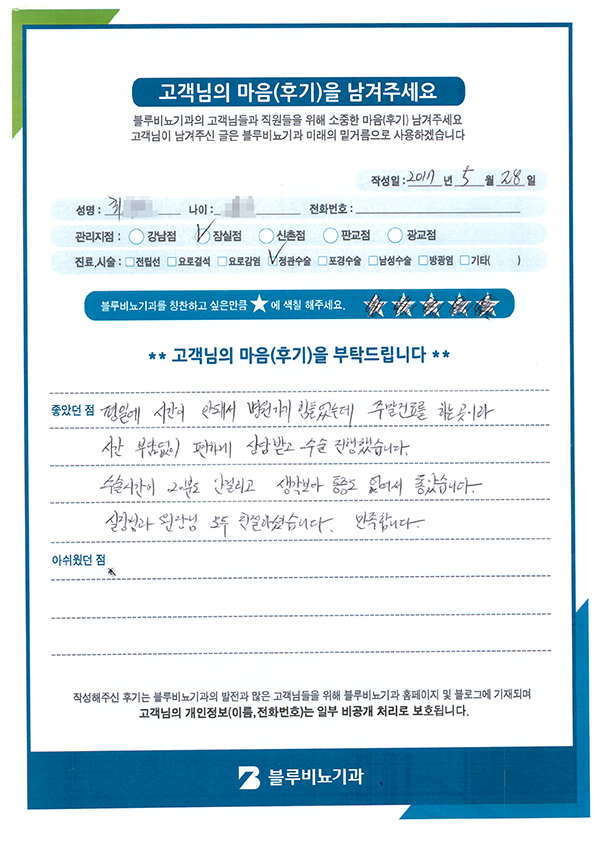 고객님의 마음(후기)을 남겨주세요
블루비뇨기과의 고객님들과 직원들을 위해 소중한 마음(후기) 남겨주세요
고객님이 남겨주신 글은 블루비뇨기과 미래의 밑거름으로 사용하겠습니다
작성일 : 2017 년 5 월 28 일
성명 : 최 나이 : 전화번호 :
관리지점 : 강남점 잠실점 신촌점 판교점 광교점
진료.시술 : 전립선 요로결석 요로감염 정관수술 포경수술 남성수술 방광염 기타( )
블루비뇨기과를 칭찬하고 싶은만큼 ★에 색칠 해주세요.
** 고객님의 마음(후기)을 부탁드립니다 **
좋았던 점 평일에 시간이 안돼서 병원가기 힘들었는데 주말진료를 하는곳이라
시간 부담없이 편하게 상담받고 수술 진행했습니다.
수술시간이 20분도 안걸리고 생각보다 통증도 없어서 좋았습니다.
실장님과 원장님 모두 친절하셨습니다. 만족합니다
아쉬웠던 점
작성해주신 후기는 블루비뇨기과의 발전과 많은 고객님들을 위해 블루비뇨기과 홈페이지 및 블로그에 기재되며
고객님의 개인정보(이름,전화번호)는 일부 비공개 처리로 보호됩니다.
블루비뇨기과